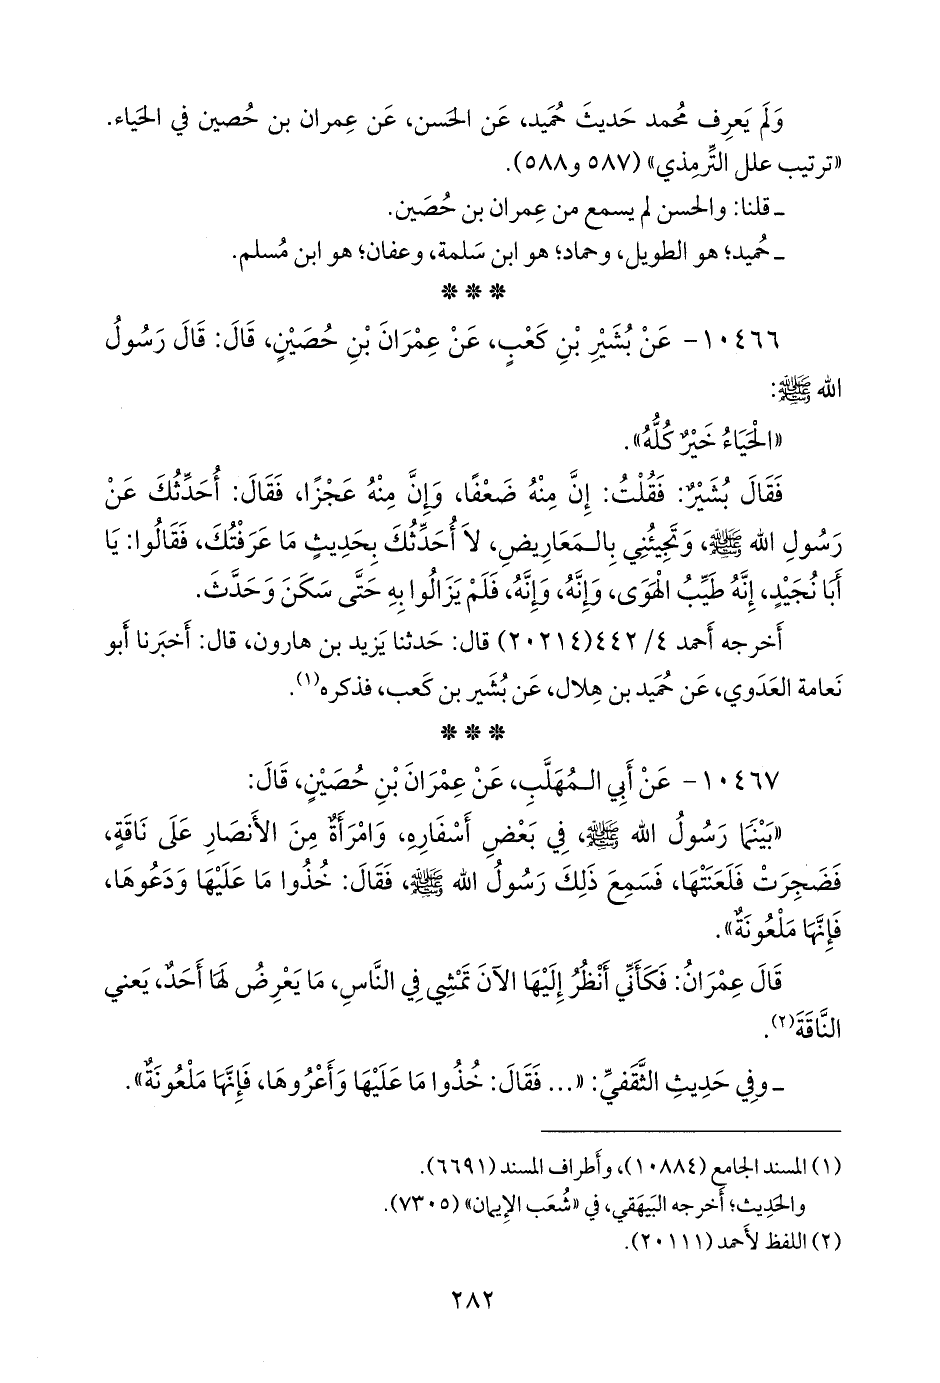 وَلَم يَعرِف مُحمد حَديثَ حُمَيد، عَن الحَسن، عَن عِمران بن حُصين في الحَياء.
«ترتيب علل التِّرمِذي» (٥٨٧ و٥٨٨).
ـ قلنا: والحسن لم يسمع من عِمران بن حُصَين.
ـ حُميد؛ هو الطويل، وحماد؛ هو ابن سَلمة، وعفان؛ هو ابن مُسلم.
* * *
١٠٤٦٦ - عَنْ بُشَيْرِ بْنِ كَعْبٍ، عَنْ عِمْرَانَ بْنِ حُصَيْنٍ، قَالَ: قَالَ رَسُولُ
الله ﷺ:
«الْحَيَاءُ خَيْرٌ كُلُّهُ».
فَقَالَ بُشَيْرٌ: فَقُلْتُ: إِنَّ مِنْهُ ضَعْفًا، وَإِنَّ مِنْهُ عَجْزًا، فَقَالَ: أُحَدِّثُكَ عَنْ
رَسُولِ الله ﷺ، وَتَجِيئُنِي بِالْـمَعَارِيضِ، لاَ أُحَدِّثُكَ بِحَدِيثٍ مَا عَرَفْتُكَ، فَقَالُوا: يَا
أَبَا نُجَيْدٍ، إِنَّهُ طَيِّبُ الْهَوَى، وَإِنَّهُ، وَإِنَّهُ، فَلَمْ يَزَالُوا بِهِ حَتَّى سَكَنَ وَحَدَّثَ.
أَخرجه أَحمد ٤/ ٤٤٢(٢٠٢١٤) قال: حَدثنا يَزيد بن هارون، قال: أَخبَرنا أَبو
نَعامة العَدَوي، عَن حُمَيد بن هِلال، عَن بُشَير بن كَعب، فذكره(١).
* * *
١٠٤٦٧ - عَنْ أَبِي الـمُهَلَّبِ، عَنْ عِمْرَانَ بْنِ حُصَيْنٍ، قَالَ:
«بَيْنَمَا رَسُولُ الله ﷺ، فِي بَعْضِ أَسْفَارِهِ، وَامْرَأَةٌ مِنَ الأَنصَارِ عَلَى نَاقَةٍ،
فَضَجِرَتْ فَلَعَنَتْهَا، فَسَمِعَ ذَلِكَ رَسُولُ الله ﷺ، فَقَالَ: خُذُوا مَا عَلَيْهَا وَدَعُوهَا،
فَإِنَّهَا مَلْعُونَةٌ».
قَالَ عِمْرَانُ: فَكَأَنِّي أَنْظُرُ إِلَيْهَا الآنَ تَمْشِي فِي النَّاسِ، مَا يَعْرِضُ لَهَا أَحَدٌ، يَعني
النَّاقَةَ(٢).
ـ وفِي حَدِيثِ الثَّقَفيِّ: «... فَقَالَ: خُذُوا مَا عَلَيْهَا وَأَعْرُوهَا، فَإِنَّهَا مَلْعُونَةٌ».
(١) المسند الجامع (١٠٨٨٤)، وأَطراف المسند (٦٦٩١).
والحَدِيث؛ أَخرجه البَيهَقي، في «شُعَب الإِيمان» (٧٣٠٥).
(٢) اللفظ لأَحمد (٢٠١١١).
٢٨٢